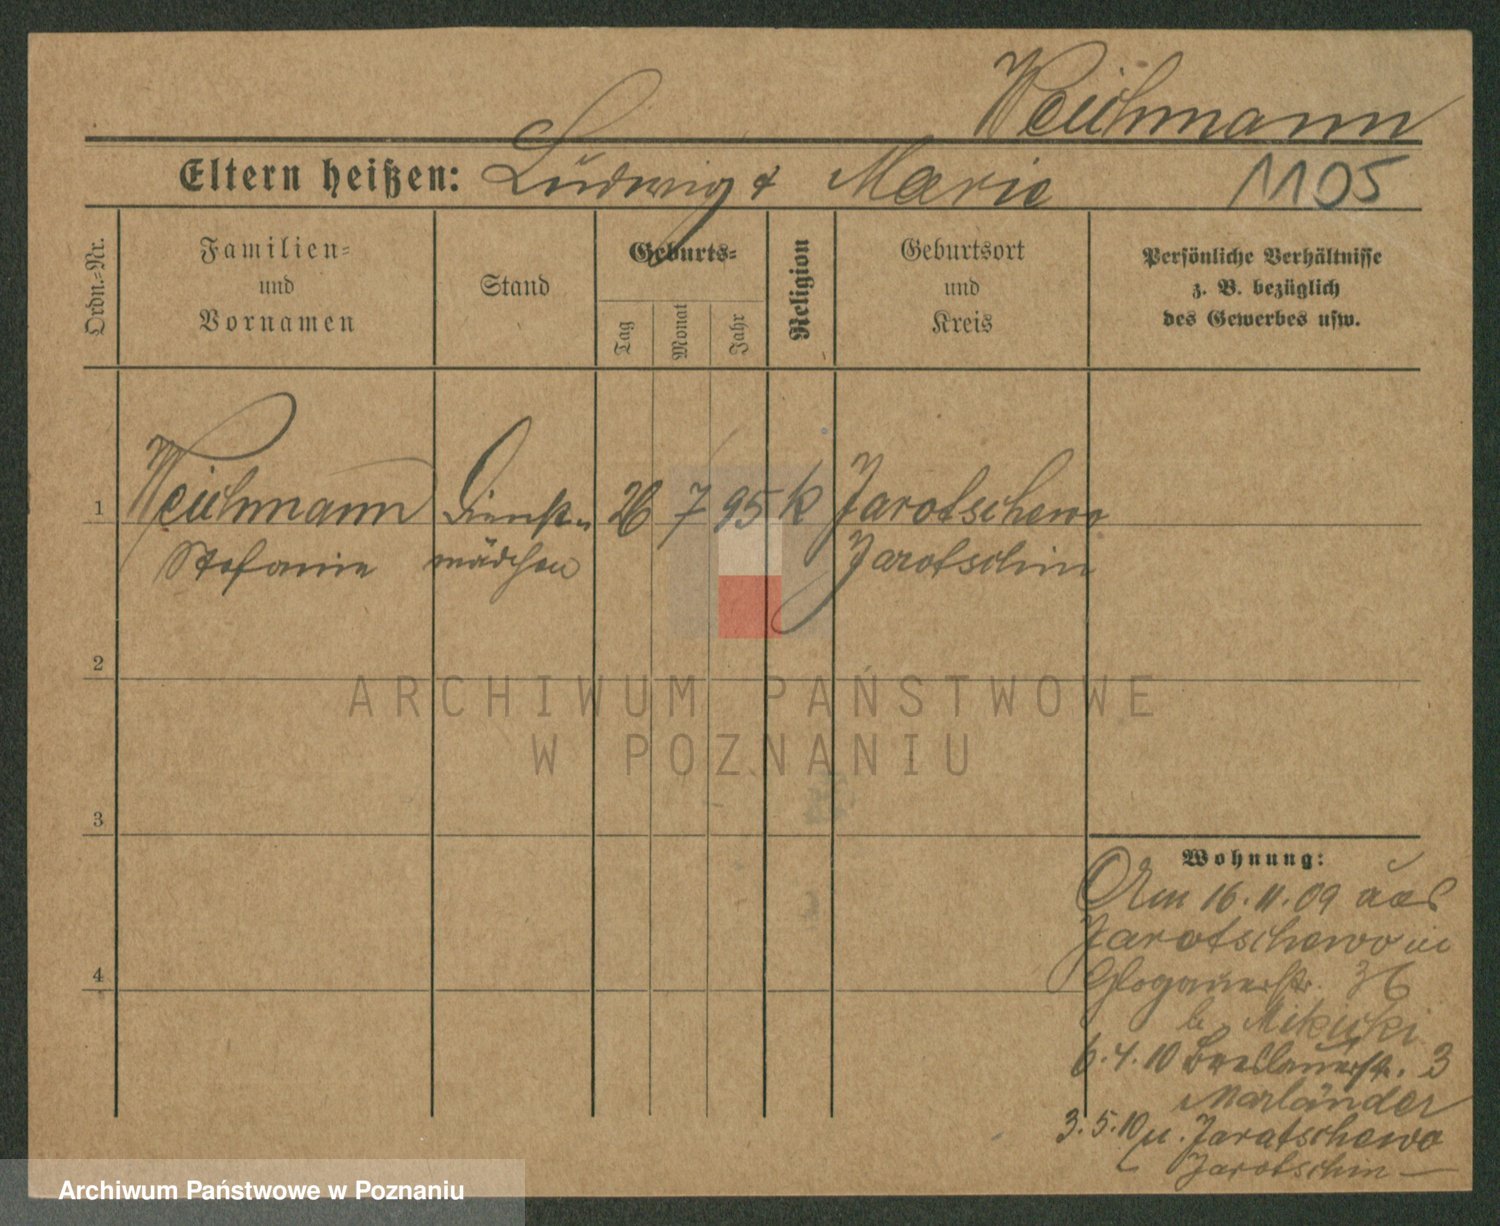 Weichmann
Eltern heißen: Ludwig & Marie 1105
Ordn.-Nr.
Familien-
und
Vornamen
Stand
Geburts-
Tag
Monat
Jahr
Religion
Geburtsort
und
Kreis
Persönliche Verhältnisse
z. B. bezüglich
des Gewerbes usw.
1 Weichmann Dienst- 26 7 95 k Jarotschewo
Stefanie mädchen Jarotschin
2
ARCHIWUM PAŃSTWOWE
W POZNANIU
3
Wohnung:
Am 16.11.09 aus
Jarotschewo in
Glogauerstr. 36
b.
4
6.4.10 Breslauerstr. 3
Marländer
3.5.10 n. Jaratschewo
Jarotschin
Archiwum Państwowe w Poznaniu